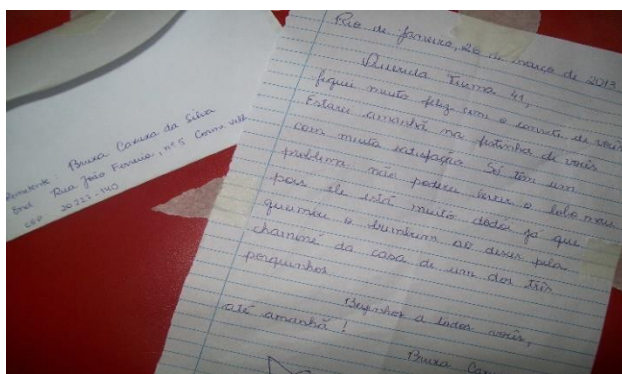 Remetente: Bruxa Caxuxa da Silva
End Rua João Ferreira, nº 5 Cosme Velh
CEP 20223-140
Rio de Janeiro, 26 de março de 2013
Querida Turma 41,
fiquei muito feliz com o convite de vocês
Estarei amanhã na festinha de vocês
com muita satisfação. Só tem um
problema: não poderei levar o lobo mau
pois ele está muito dodói já que
queimou o bumbum ao descer pela
chaminé da casa de um dos três
porquinhos.
Beijinhos a todos vocês,
até amanhã!
Bruxa